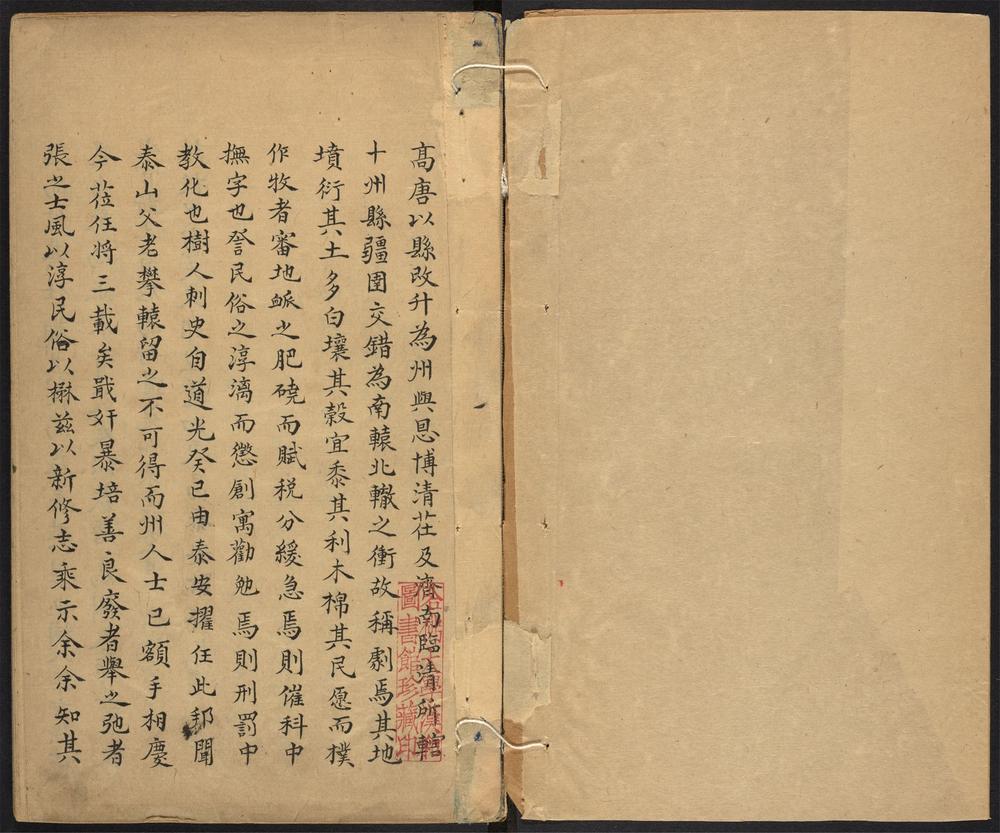 高唐以縣改升為州與恩博清茌及濟南臨清所轄
十州縣疆圉交錯為南轅北轍之衝故稱劇焉其地
墳衍其土多白壤其穀宜黍其利木棉其民愿而樸
作牧者審地脈之肥磽而賦稅分緩急焉則催科中
撫字也詧民俗之淳漓而懲創寓勸勉焉則刑罰中
教化也樹人刺史自道光癸巳由泰安擢任此邦聞
泰山父老攀轅留之不可得而州人士已額手相慶
今莅任将三載矣戢奸暴培善良廢者舉之弛者
張之士風以淳民俗以楙茲以新修志乘示余余知其
圖書館珍藏印